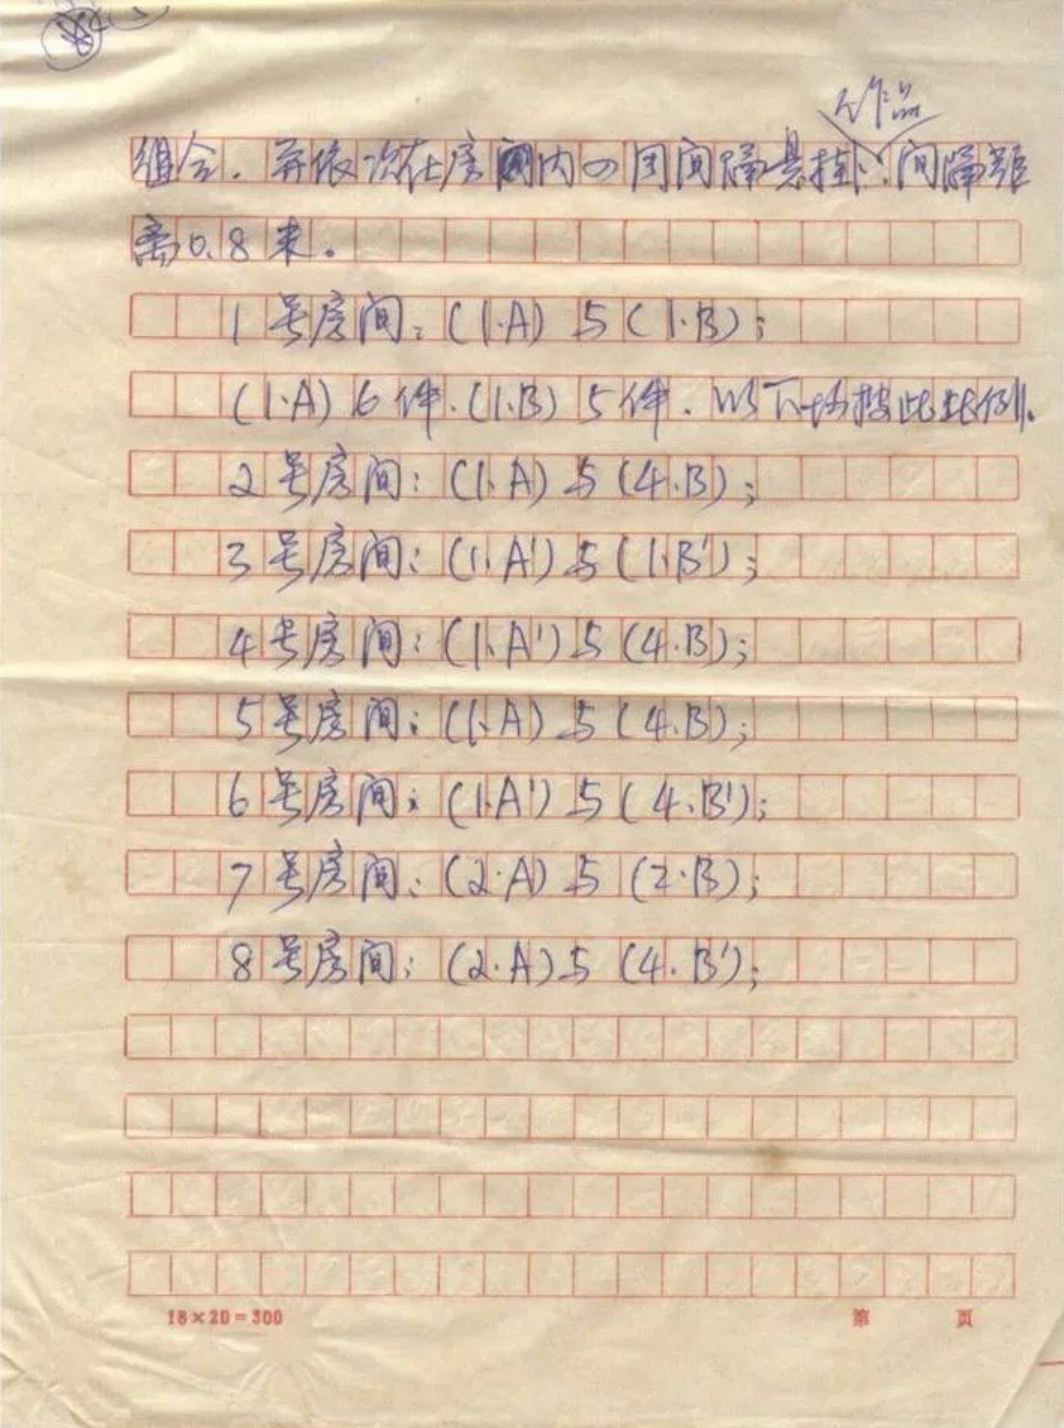 作品
组合. 并依次在房间内四周间隔悬挂. 间隔距
离0.8米.
1号房间:(1.A)与(1.B);
(1.A)6件.(1.B)5件.以下均按此比例.
2号房间:(1.A)与(4.B);
3号房间:(1.A')与(1.B');
4号房间:(1.A')与(4.B);
5号房间:(1.A)与(4.B);
6号房间:(1.A')与(4.B');
7号房间:(2.A)与(2.B);
8号房间:(2.A)与(4.B');
18×20=300
第 页